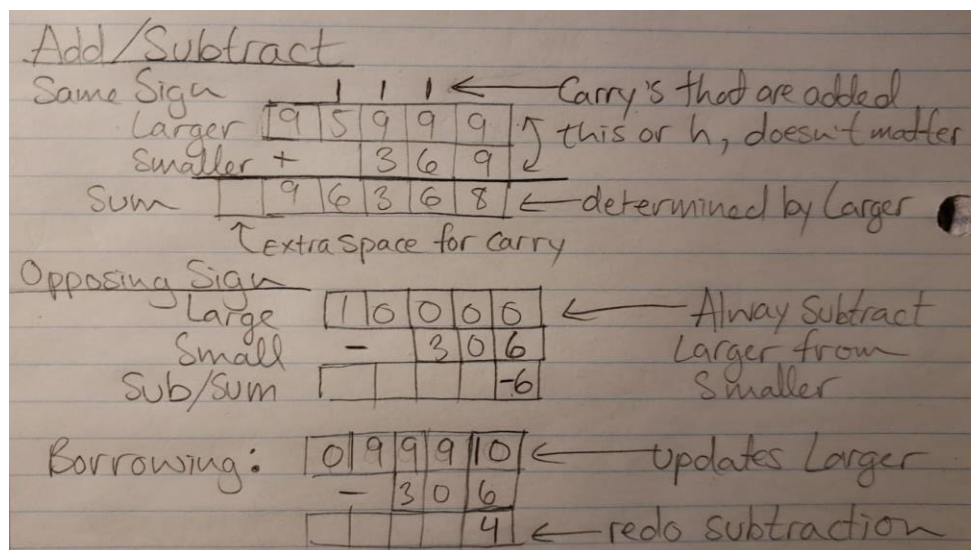 Add/Subtract
Same Sign 1 1 1 ← Carry's that are added
Larger 9 5 9 9 9 this or h, doesn't matter
Smaller + 3 6 9
Sum 9 6 3 6 8 ← determined by Larger
Extra space for carry
Opposing Sign
Large 1 0 0 0 0 ← Alway Subtract
Small - 3 0 6 Larger from
Sub/Sum -6 Smaller
Borrowing: 0 9 9 9 10 ← updates Larger
- 3 0 6
4 ← redo subtraction